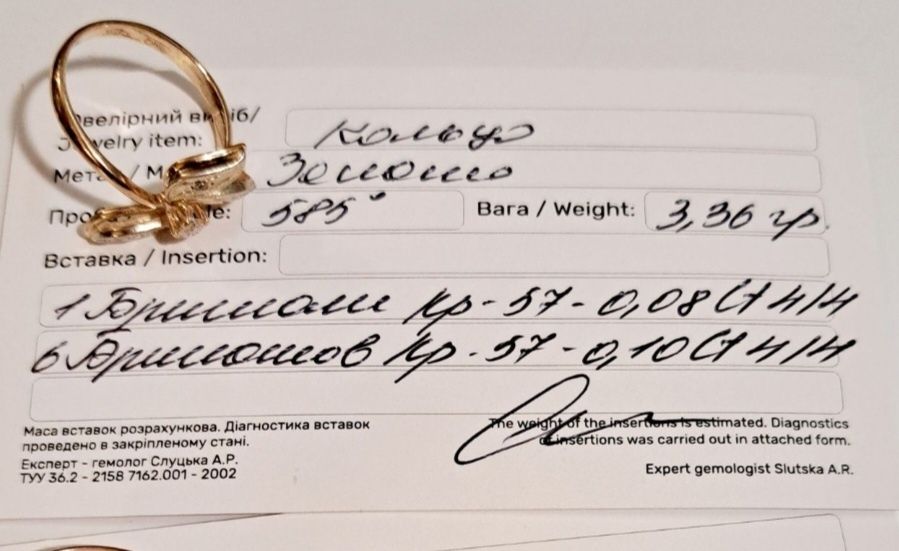 Ювелірний виріб/
Jewelry item: Кольцо
Метал / M Золото
Про le: 585° Вага / Weight: 3,36 гр.
Вставка / Insertion:
1 Бриллиант Кр-57-0,08 Ct 4/4
6 Бриллиантов Кр-57-0,10 Ct 4/4
Маса вставок розрахункова. Діагностика вставок
проведено в закріпленому стані.
Експерт - гемолог Слуцька А.Р.
ТУУ 36.2 - 2158 7162.001 - 2002
The weight of the insertions is estimated. Diagnostics
of insertions was carried out in attached form.
Expert gemologist Slutska A.R.